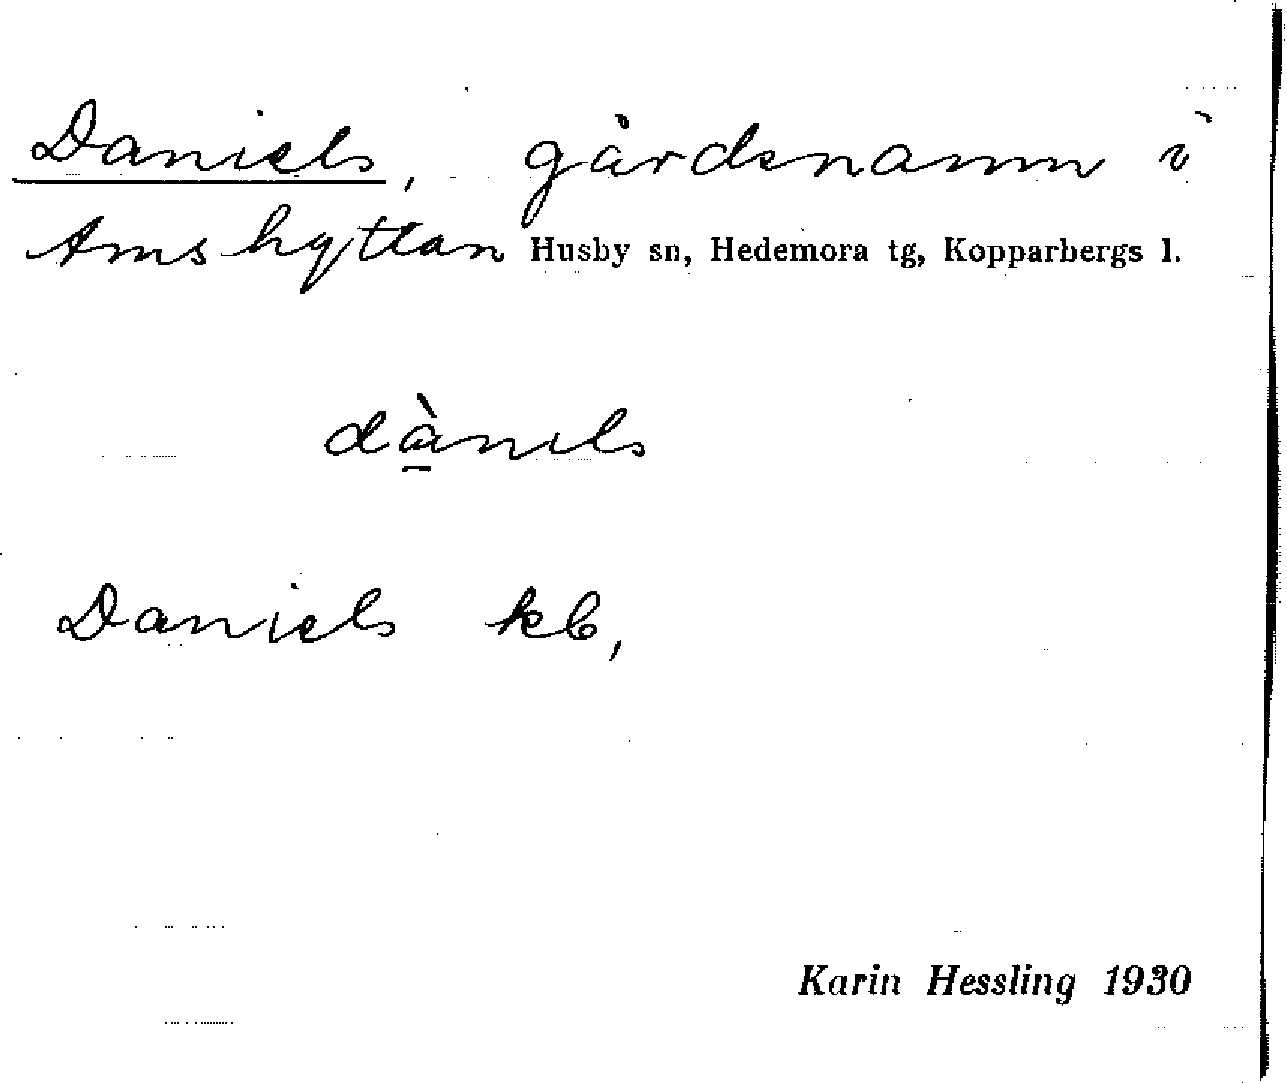 Daniels, gårdsnamn i
Amshyttan Husby sn, Hedemora tg, Kopparbergs l.
dà̱nɩls
Daniels kb,
Karin Hessling 1930